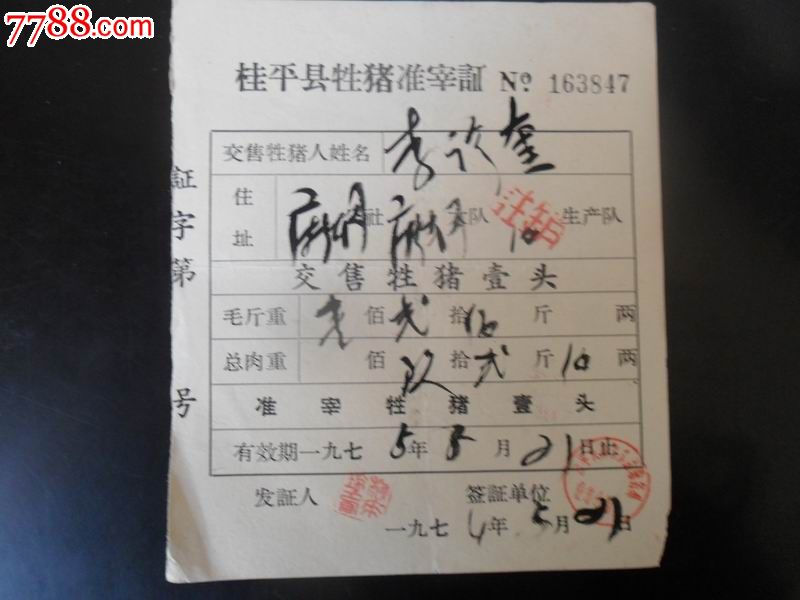 7788.com
桂平县牲猪准宰証 № 163847
証字第 号
交售牲猪人姓名 李
住址 麻垌 社 麻垌 大队 10 生产队
注销
交售牲猪壹头
毛斤重 壱 佰 弍 拾 伍 斤 两
总肉重 佰 玖 拾 弍 斤 10 两
准宰牲猪壹头
有效期一九七5年8月21日止
发証人 签証单位
一九七4年 月21日